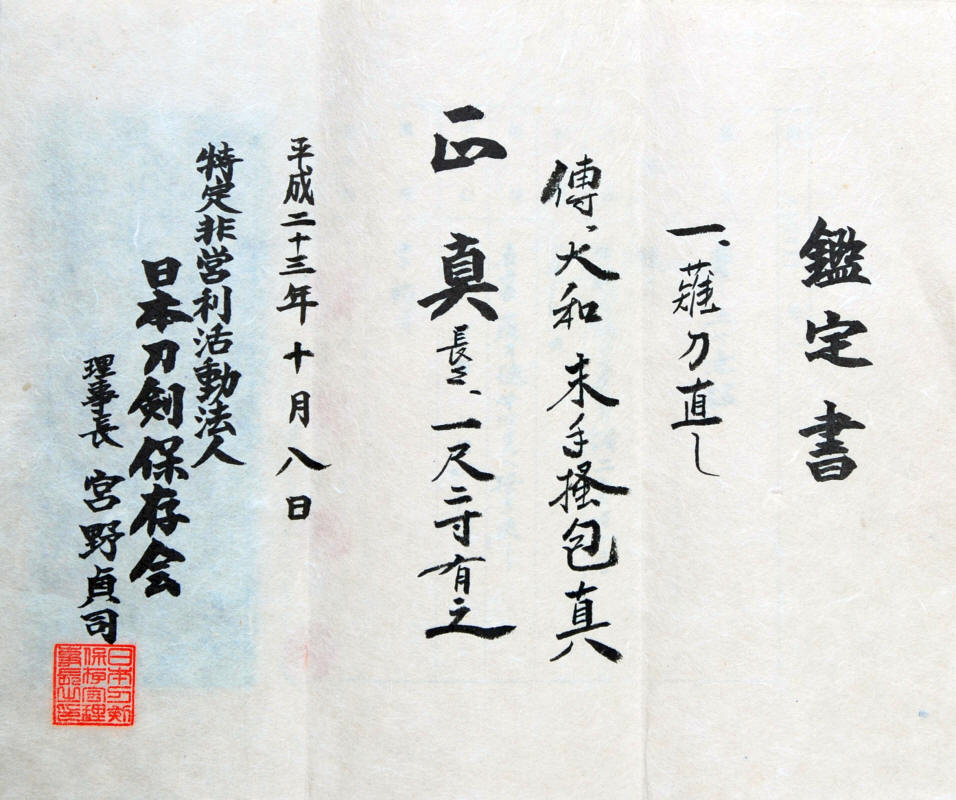 鑑定書
一、薙刀直し
傳、大和末手掻包真
正真 長さ、一尺二寸有之
平成二十三年十月八日
特定非営利活動法人
日本刀剣保存会
理事長 宮野貞司
日本刀剣
保存会理
事長之印